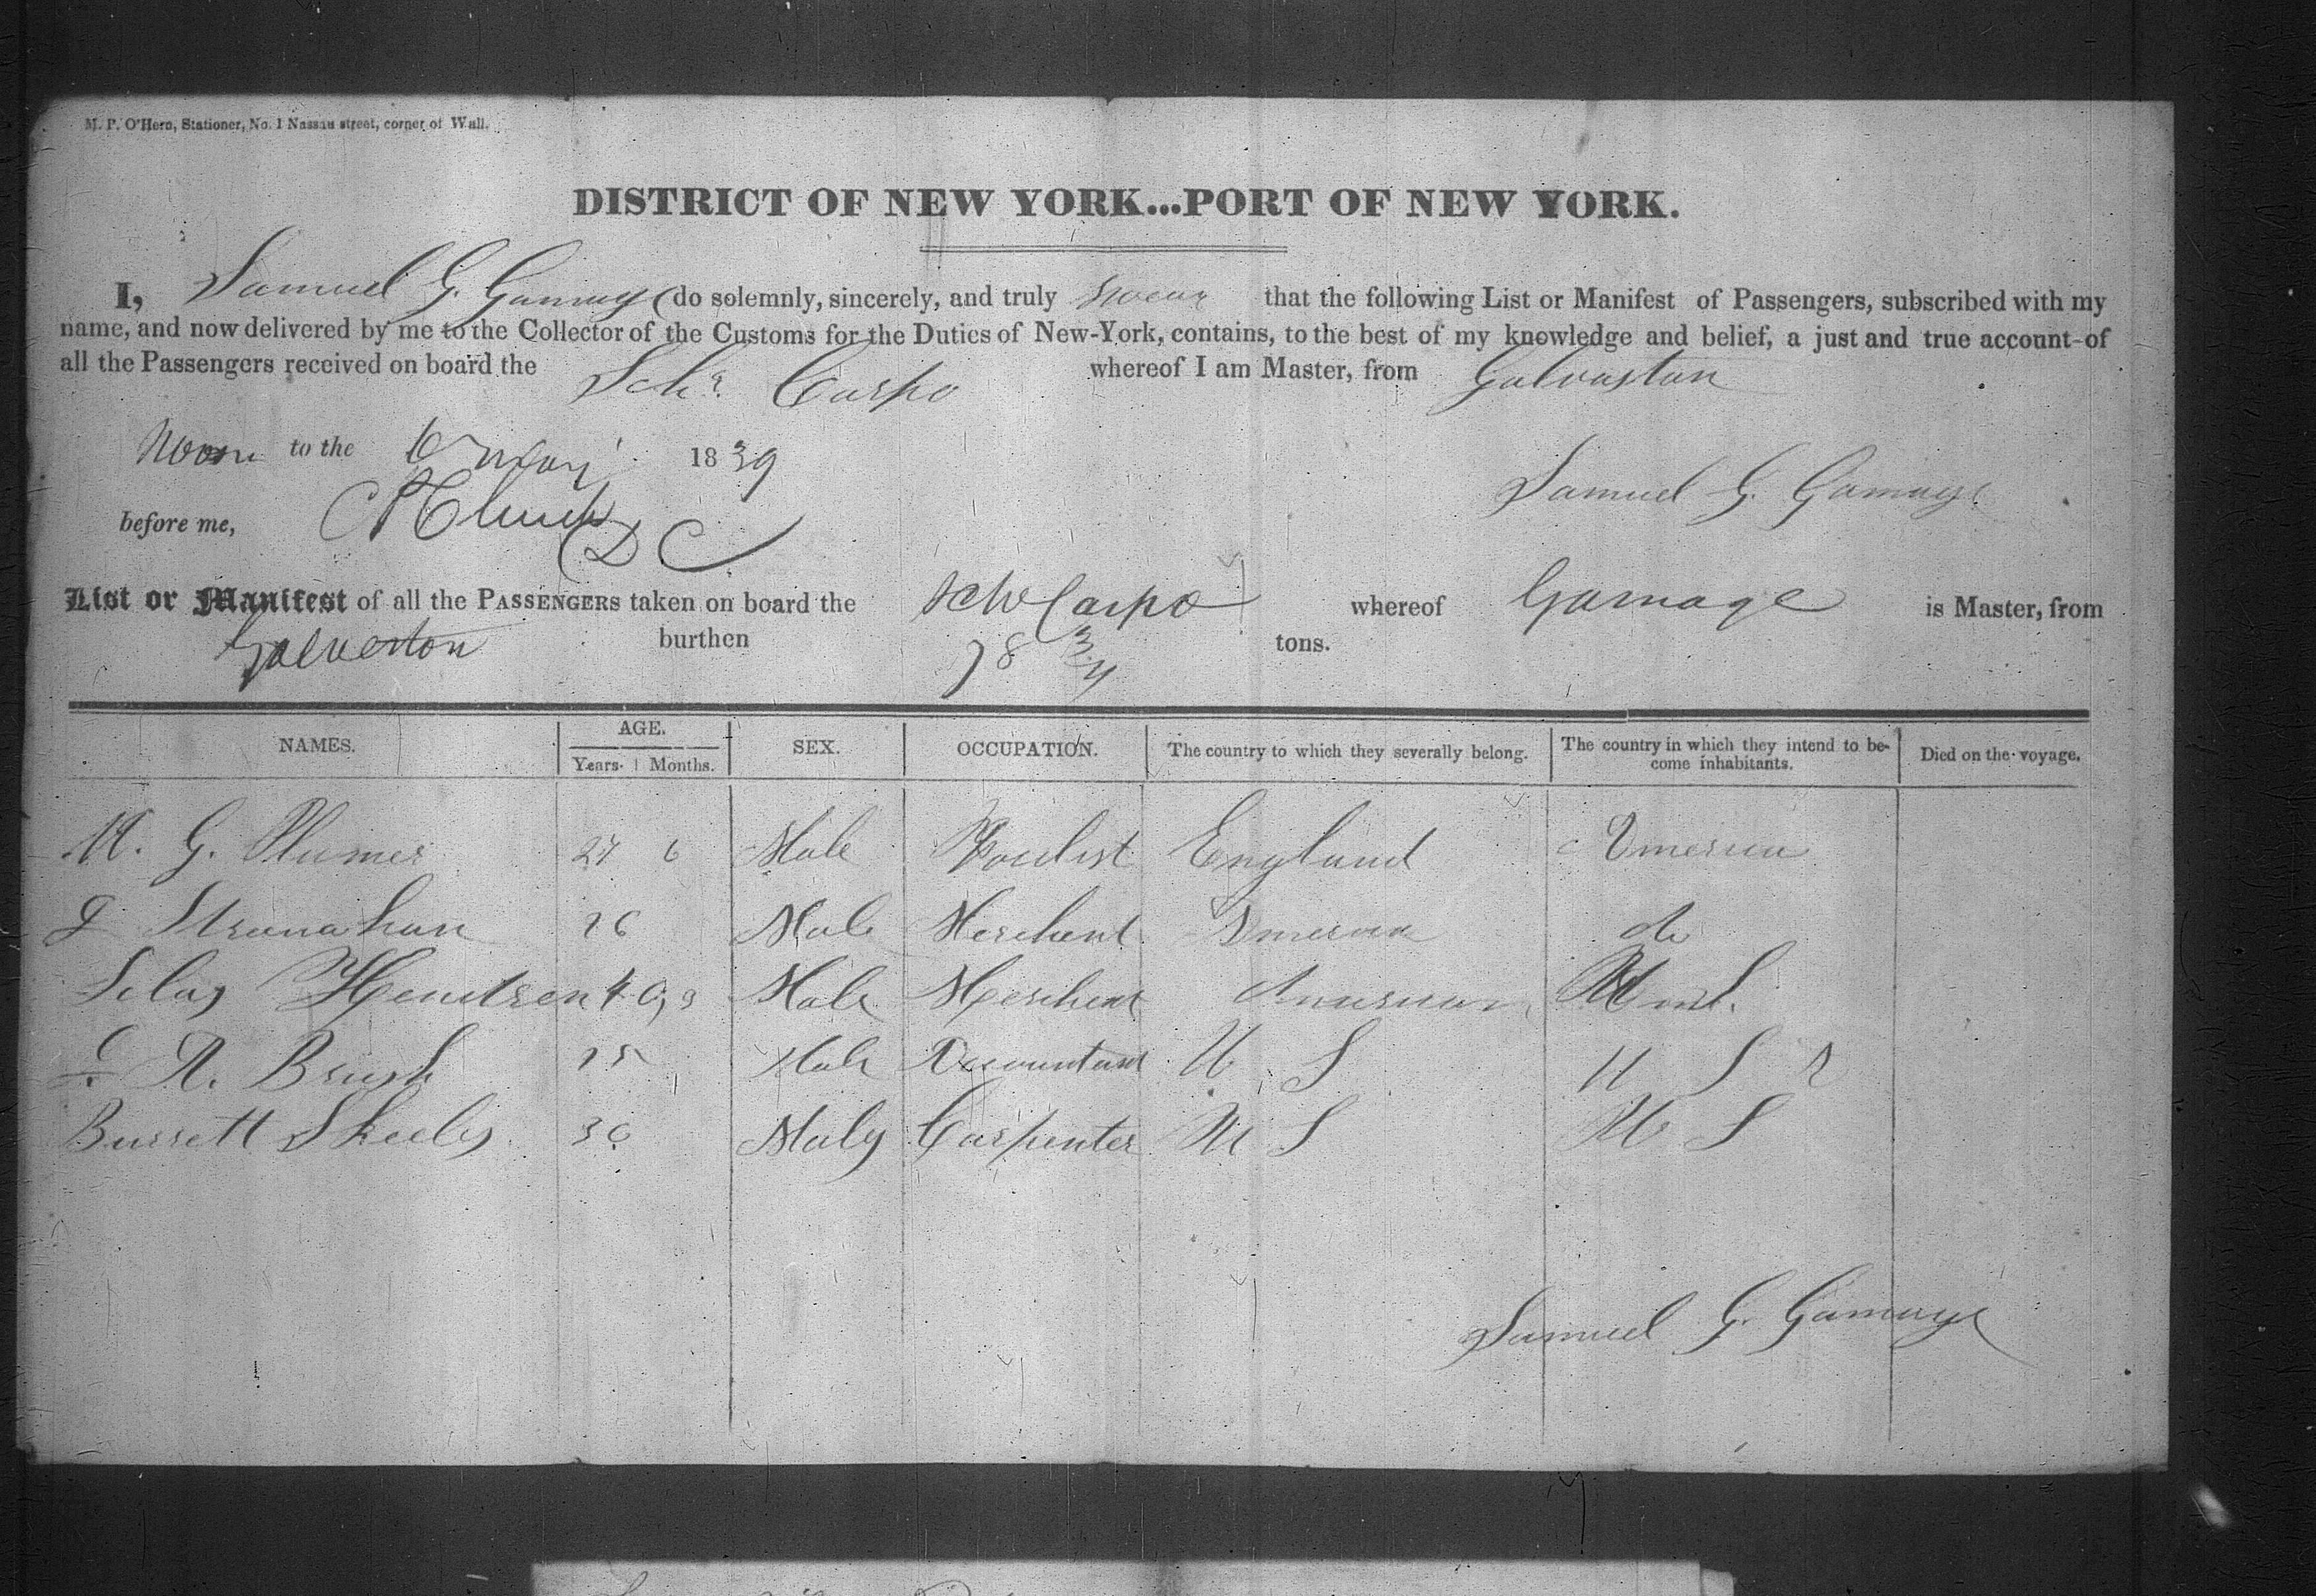 M. P. O'Hern, Stationer, No. 1 Nassau street, corner of Wall.
DISTRICT OF NEW YORK...PORT OF NEW YORK.
I, Samuel G. Gamage do solemnly, sincerely, and truly swear that the following List or Manifest of Passengers, subscribed with my
name, and now delivered by me to the Collector of the Customs for the Duties of New-York, contains, to the best of my knowledge and belief, a just and true account of
all the Passengers received on board the Schr Carpo whereof I am Master, from Galvaston
Sworn to the 6 May 1839
Samuel G. Gamage
before me, DC
List or Manifest of all the PASSENGERS taken on board the Schr Carpo whereof Gamage is Master, from
Galveston burthen 78 3/4 tons.
NAMES. AGE. Years. Months. SEX. OCCUPATION. The country to which they severally belong. The country in which they intend to become inhabitants. Died on the voyage.
G. Plumer 27 6 Male England America
J Stranahan 26 Male Merchant America do
Silas 40, 9 Male Merchant American
A. Brush 25 Male Accountant U S U S
Burrett Skeels 36 Male Carpenter U S U S
Samuel G. Gamage